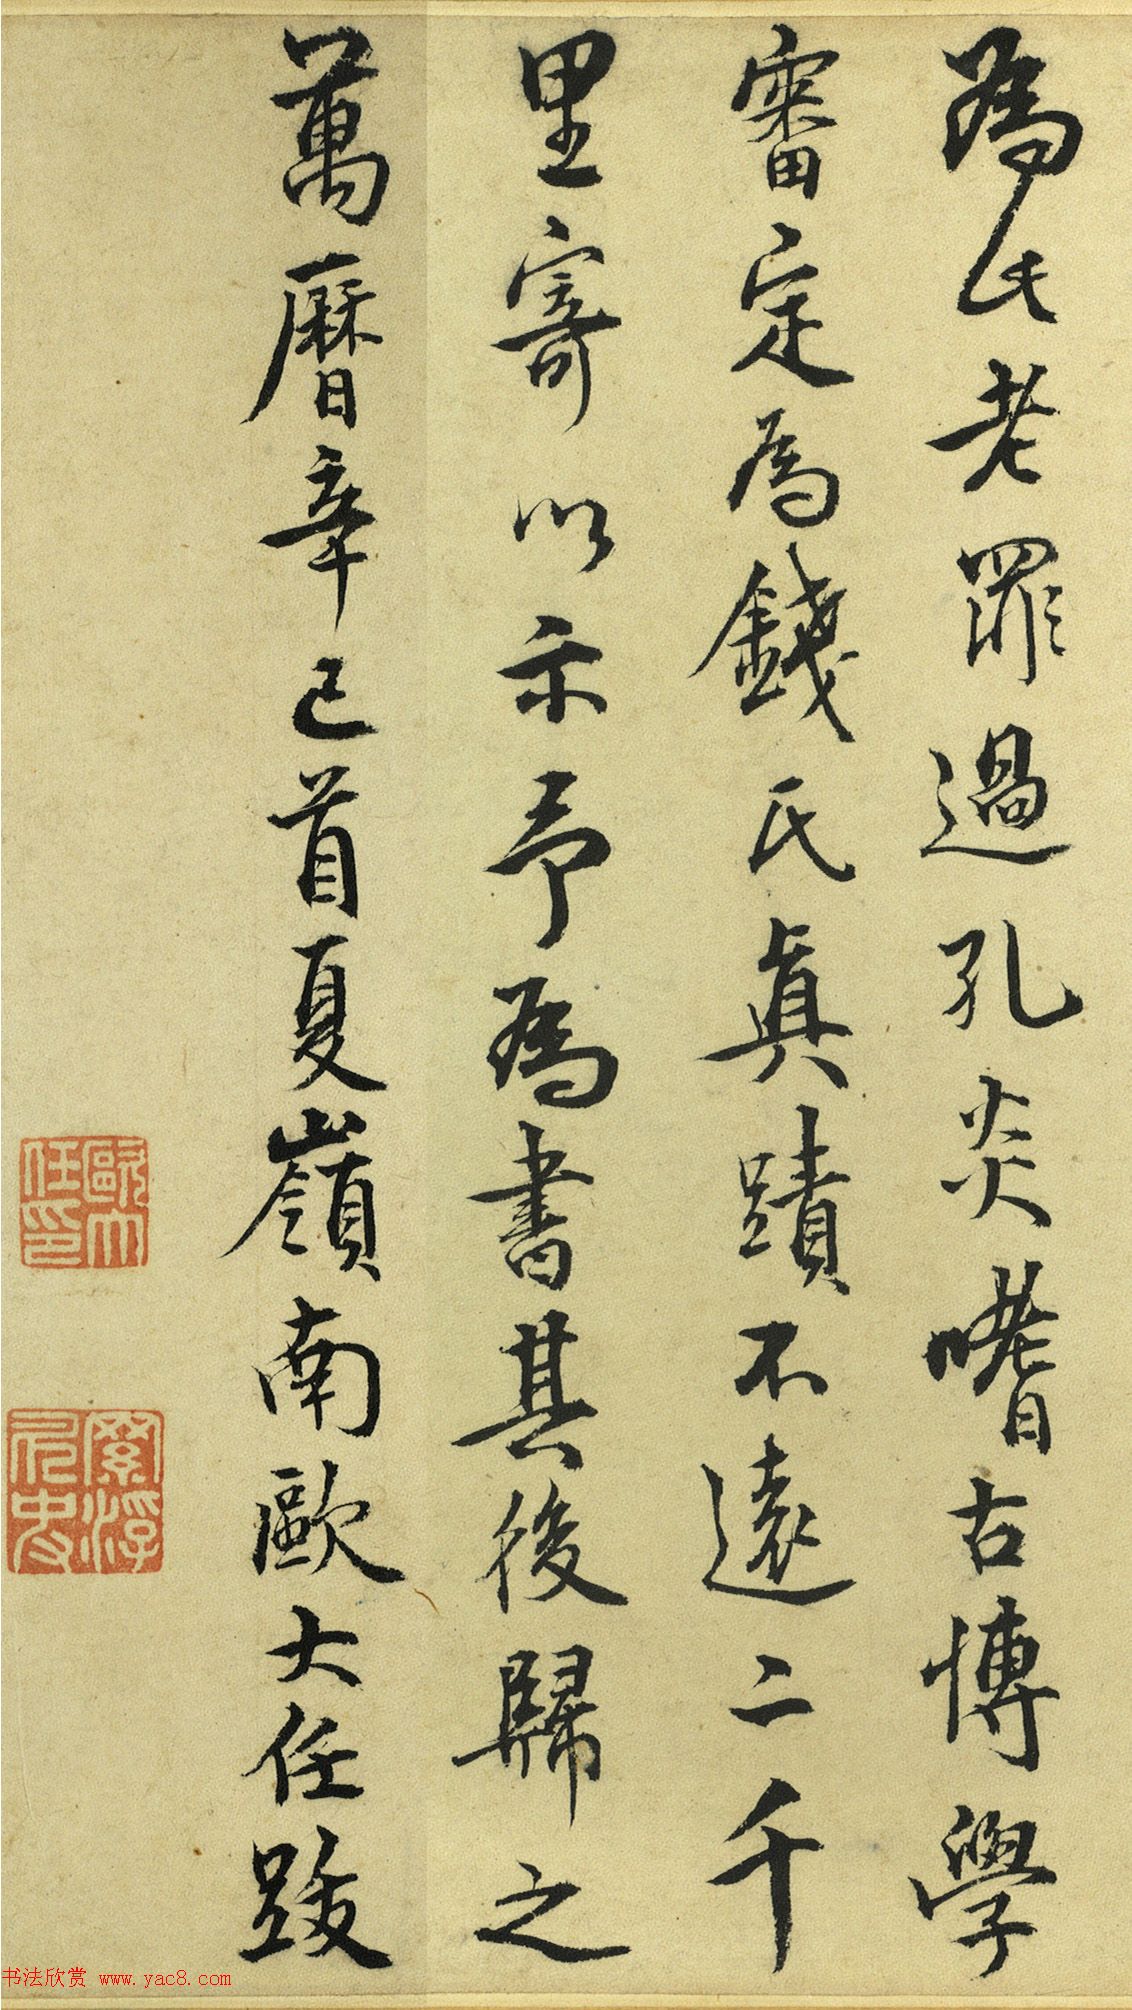 為此老罪過孔炎嗜古博學
審定為錢氏真蹟不遠二千
里寄以示予為書其後歸之
萬曆辛巳首夏嶺南歐大任跋
歐大任印
书法欣赏 www.yac8.com